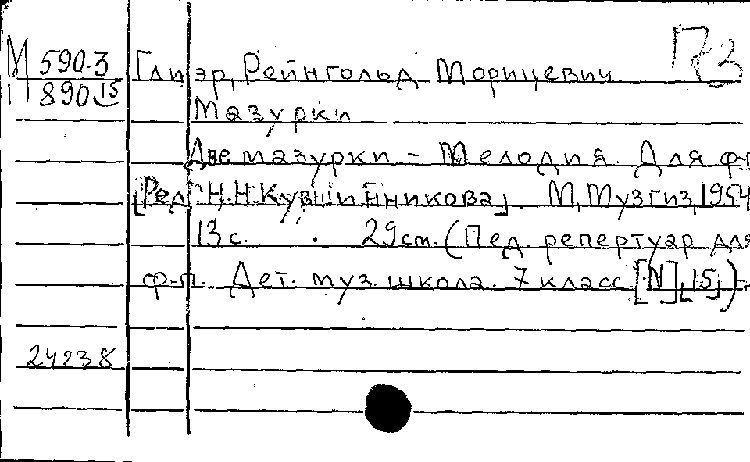 М 590-3
П 890 15
П 3
Глиэр, Рейнгольд Морицевич
Мазурки
Две мазурки - Мелодия. Для ф-п
[Ред. Н.Н Кувшинникова]. М, Музгиз, 1954
13 с. 29 см. (Пед. репертуар для
ф-п. Дет. муз. школа. 7 класс [N] [15])
24238